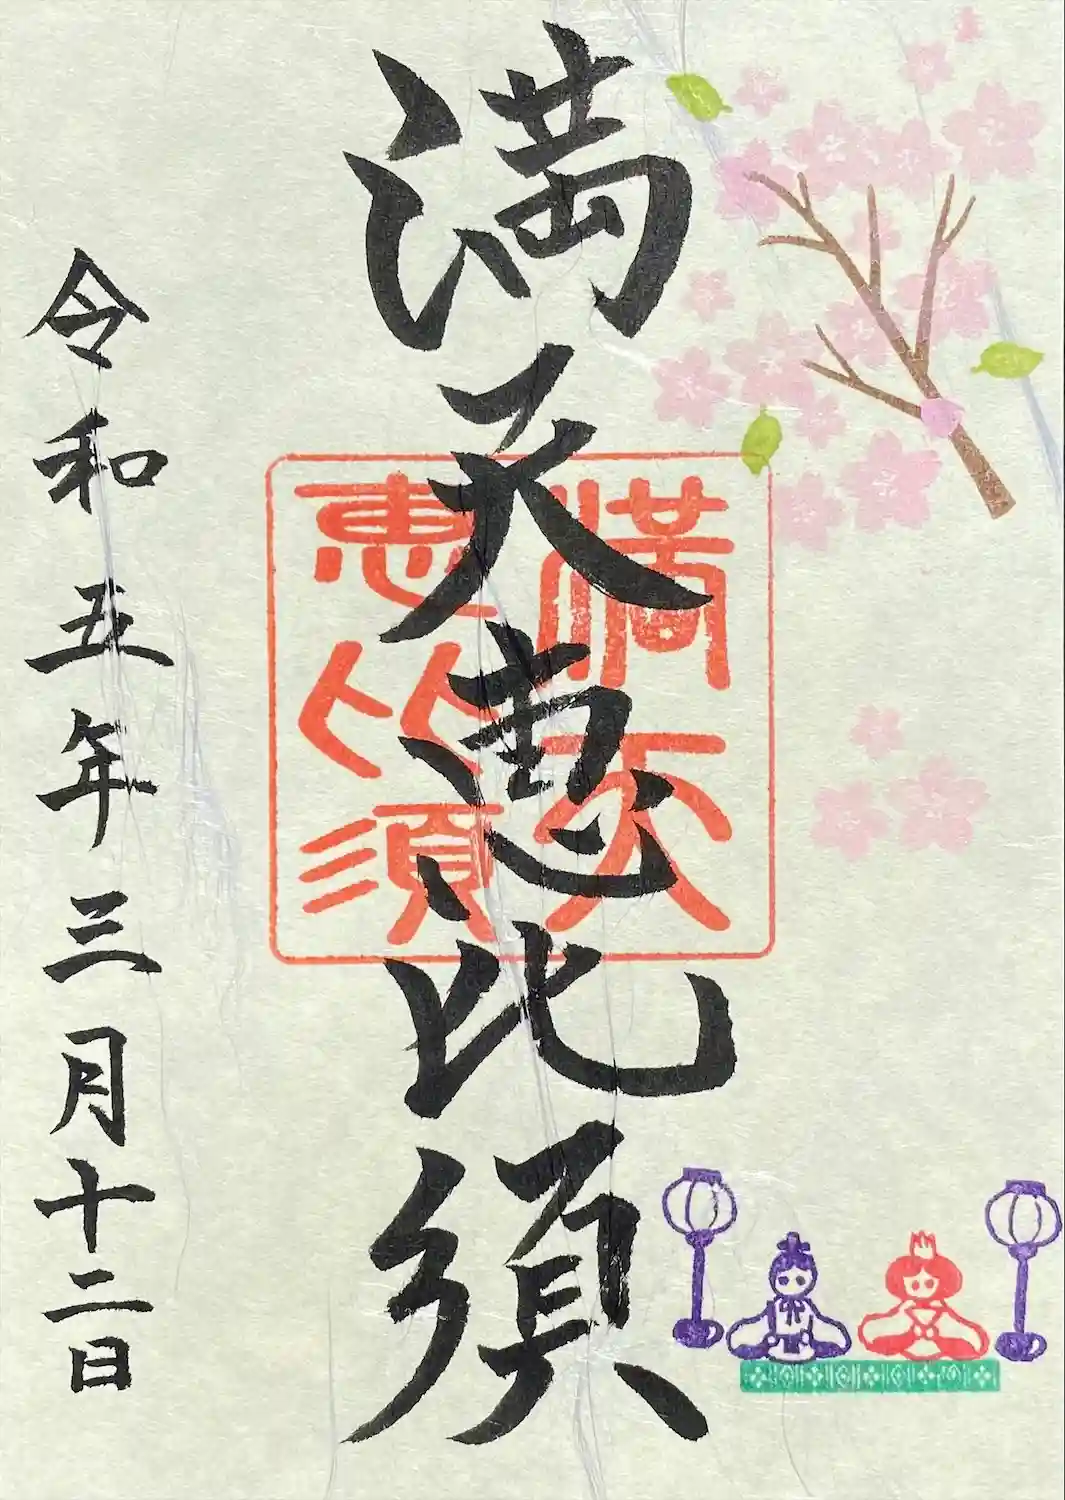 満天恵比須
満天
恵比須
令和五年三月十二日